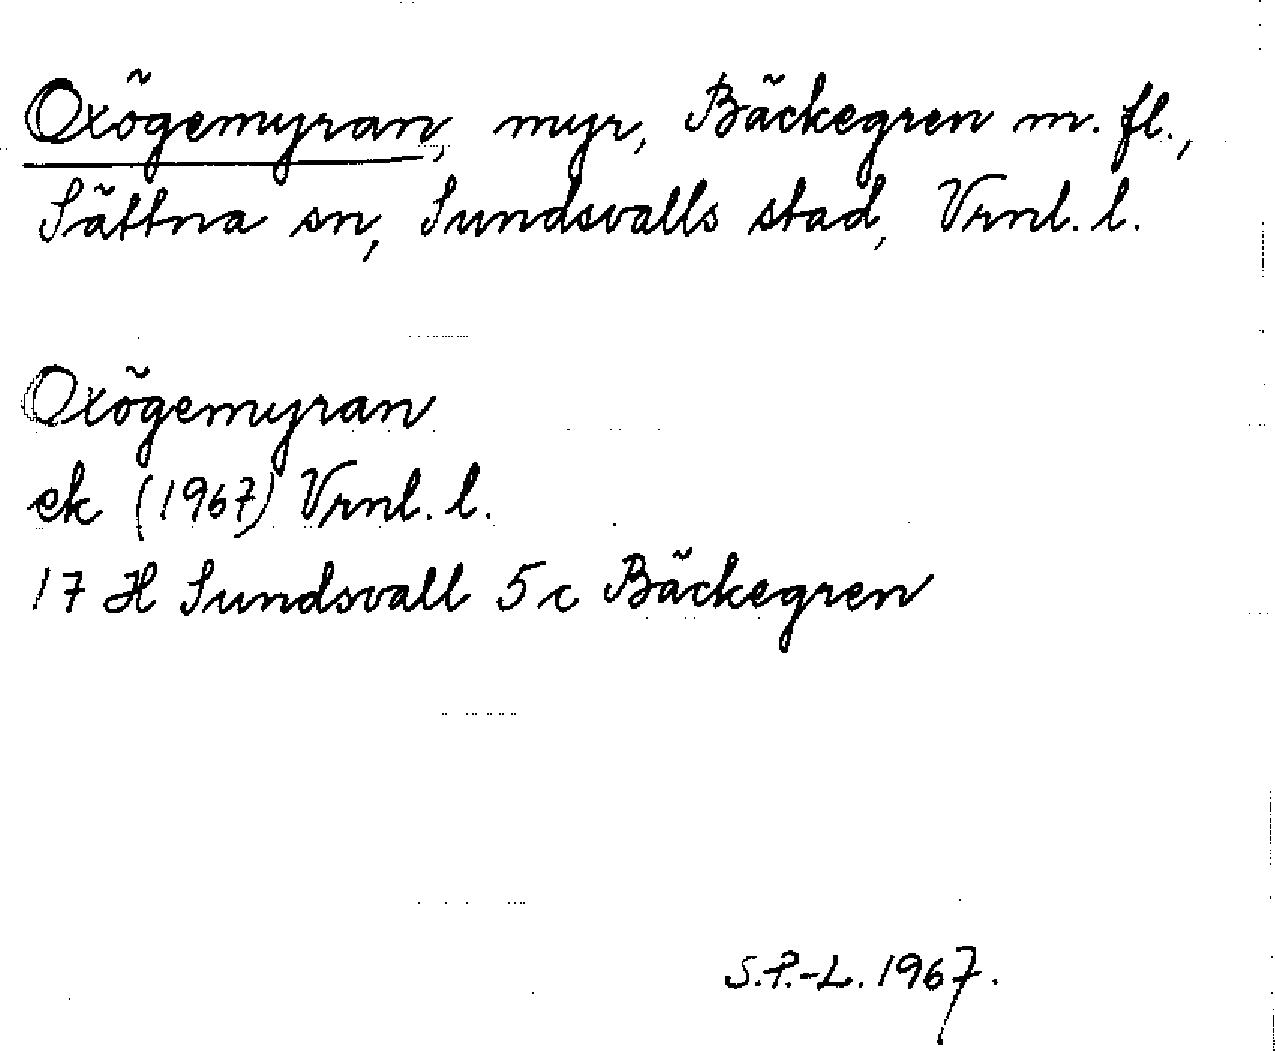 Oxögemyran, myr, Bäckegren m. fl.,
Sättna sn, Sundsvalls stad, Vrnl. l.
Oxögemyran
ek (1967) Vrnl. l.
17 H Sundsvall 5 c Bäckegren
S.P.-L. 1967.